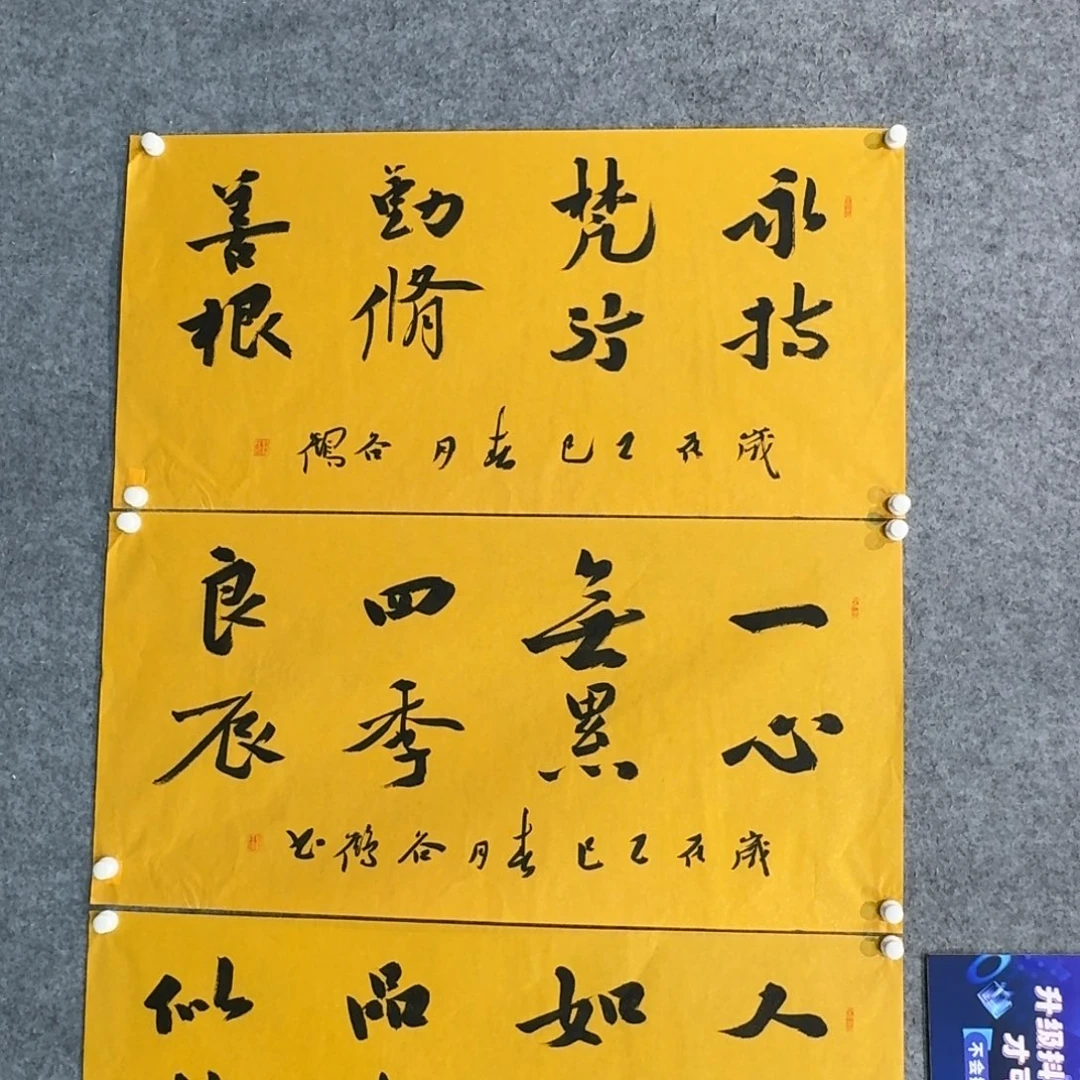 永持
梵行
勤脩
善根
歲在乙巳春月谷鶴
一心
無累
四季
良辰
歲在乙巳春月谷鶴書
人
如
品
似
升级抖
才可
不会